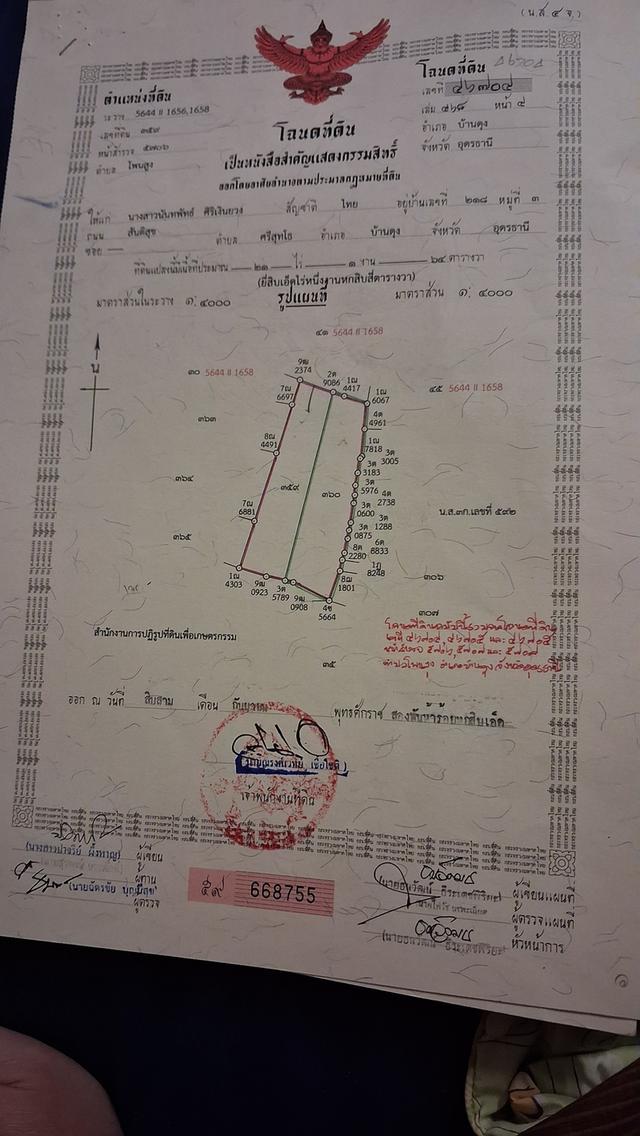 (น.ส.๔ จ.)
ตำแหน่งที่ดิน
ระวาง 5644 II 1656,1658
เลขที่ดิน ๓๕๙
หน้าสำรวจ ๕๗๐๖
ตำบล โพนสูง
โฉนดที่ดิน
เลขที่ ๔๖๗๐๔
เล่ม ๔๖๘ หน้า ๔
อำเภอ บ้านดุง
จังหวัด อุดรธานี
โฉนดที่ดิน
เป็นหนังสือสำคัญแสดงกรรมสิทธิ์
ออกโดยอาศัยอำนาจตามประมวลกฎหมายที่ดิน
ให้แก่ นางสาวนันทพัทธ์ ศิริเงินยวง สัญชาติ ไทย อยู่บ้านเลขที่ ๒๑๘ หมู่ที่ ๓
ถนน สันติสุข ตำบล ศรีสุทโธ อำเภอ บ้านดุง จังหวัด อุดรธานี
ซอย
ที่ดินแปลงนี้มีเนื้อที่ประมาณ ๒๑ ไร่ ๑ งาน ๖๔ ตารางวา
(ยี่สิบเอ็ดไร่หนึ่งงานหกสิบสี่ตารางวา)
มาตราส่วนในระวาง ๑: ๔๐๐๐ รูปแผนที่ มาตราส่วน ๑: ๔๐๐๐
๔๑ 5644 II 1658
๓๐ 5644 II 1658
๔๕ 5644 II 1658
9ฒ
2374
2ต
9086
1ณ
4417
1ณ
6067
7ณ
6697
4ต
4961
๓๖๓
1ณ
7818
3ต
3005
8ณ
4491
3ต
3183
๓๖๔
๓๕๙
๓๖๐
3ต
5976
4ต
2738
3ต
0600
3ต
1288
7ณ
6881
3ต
0875
6ต
8833
น.ส.๓ก.เลขที่ ๕๙๒
๓๖๕
8ต
2280
1ฎ
8248
1ณ
4303
9ฒ
0923
3ต
5789
9ฒ
0908
8ฌ
1801
4ช
5664
๓๐๖
๓๐๗
สำนักงานการปฏิรูปที่ดินเพื่อเกษตรกรรม
๓๕
ออก ณ วันที่ สิบสาม เดือน กันยายน พุทธศักราช สองพันห้าร้อยหกสิบเอ็ด
เจ้าพนักงานที่ดิน
ผู้เขียน
ผู้ทาน
(นายฉัตรชัย บุญมีสุข)
ผู้ตรวจ
๕๙ 668755
ผู้เขียนแผนที่
ผู้ตรวจแผนที่
หัวหน้าการ